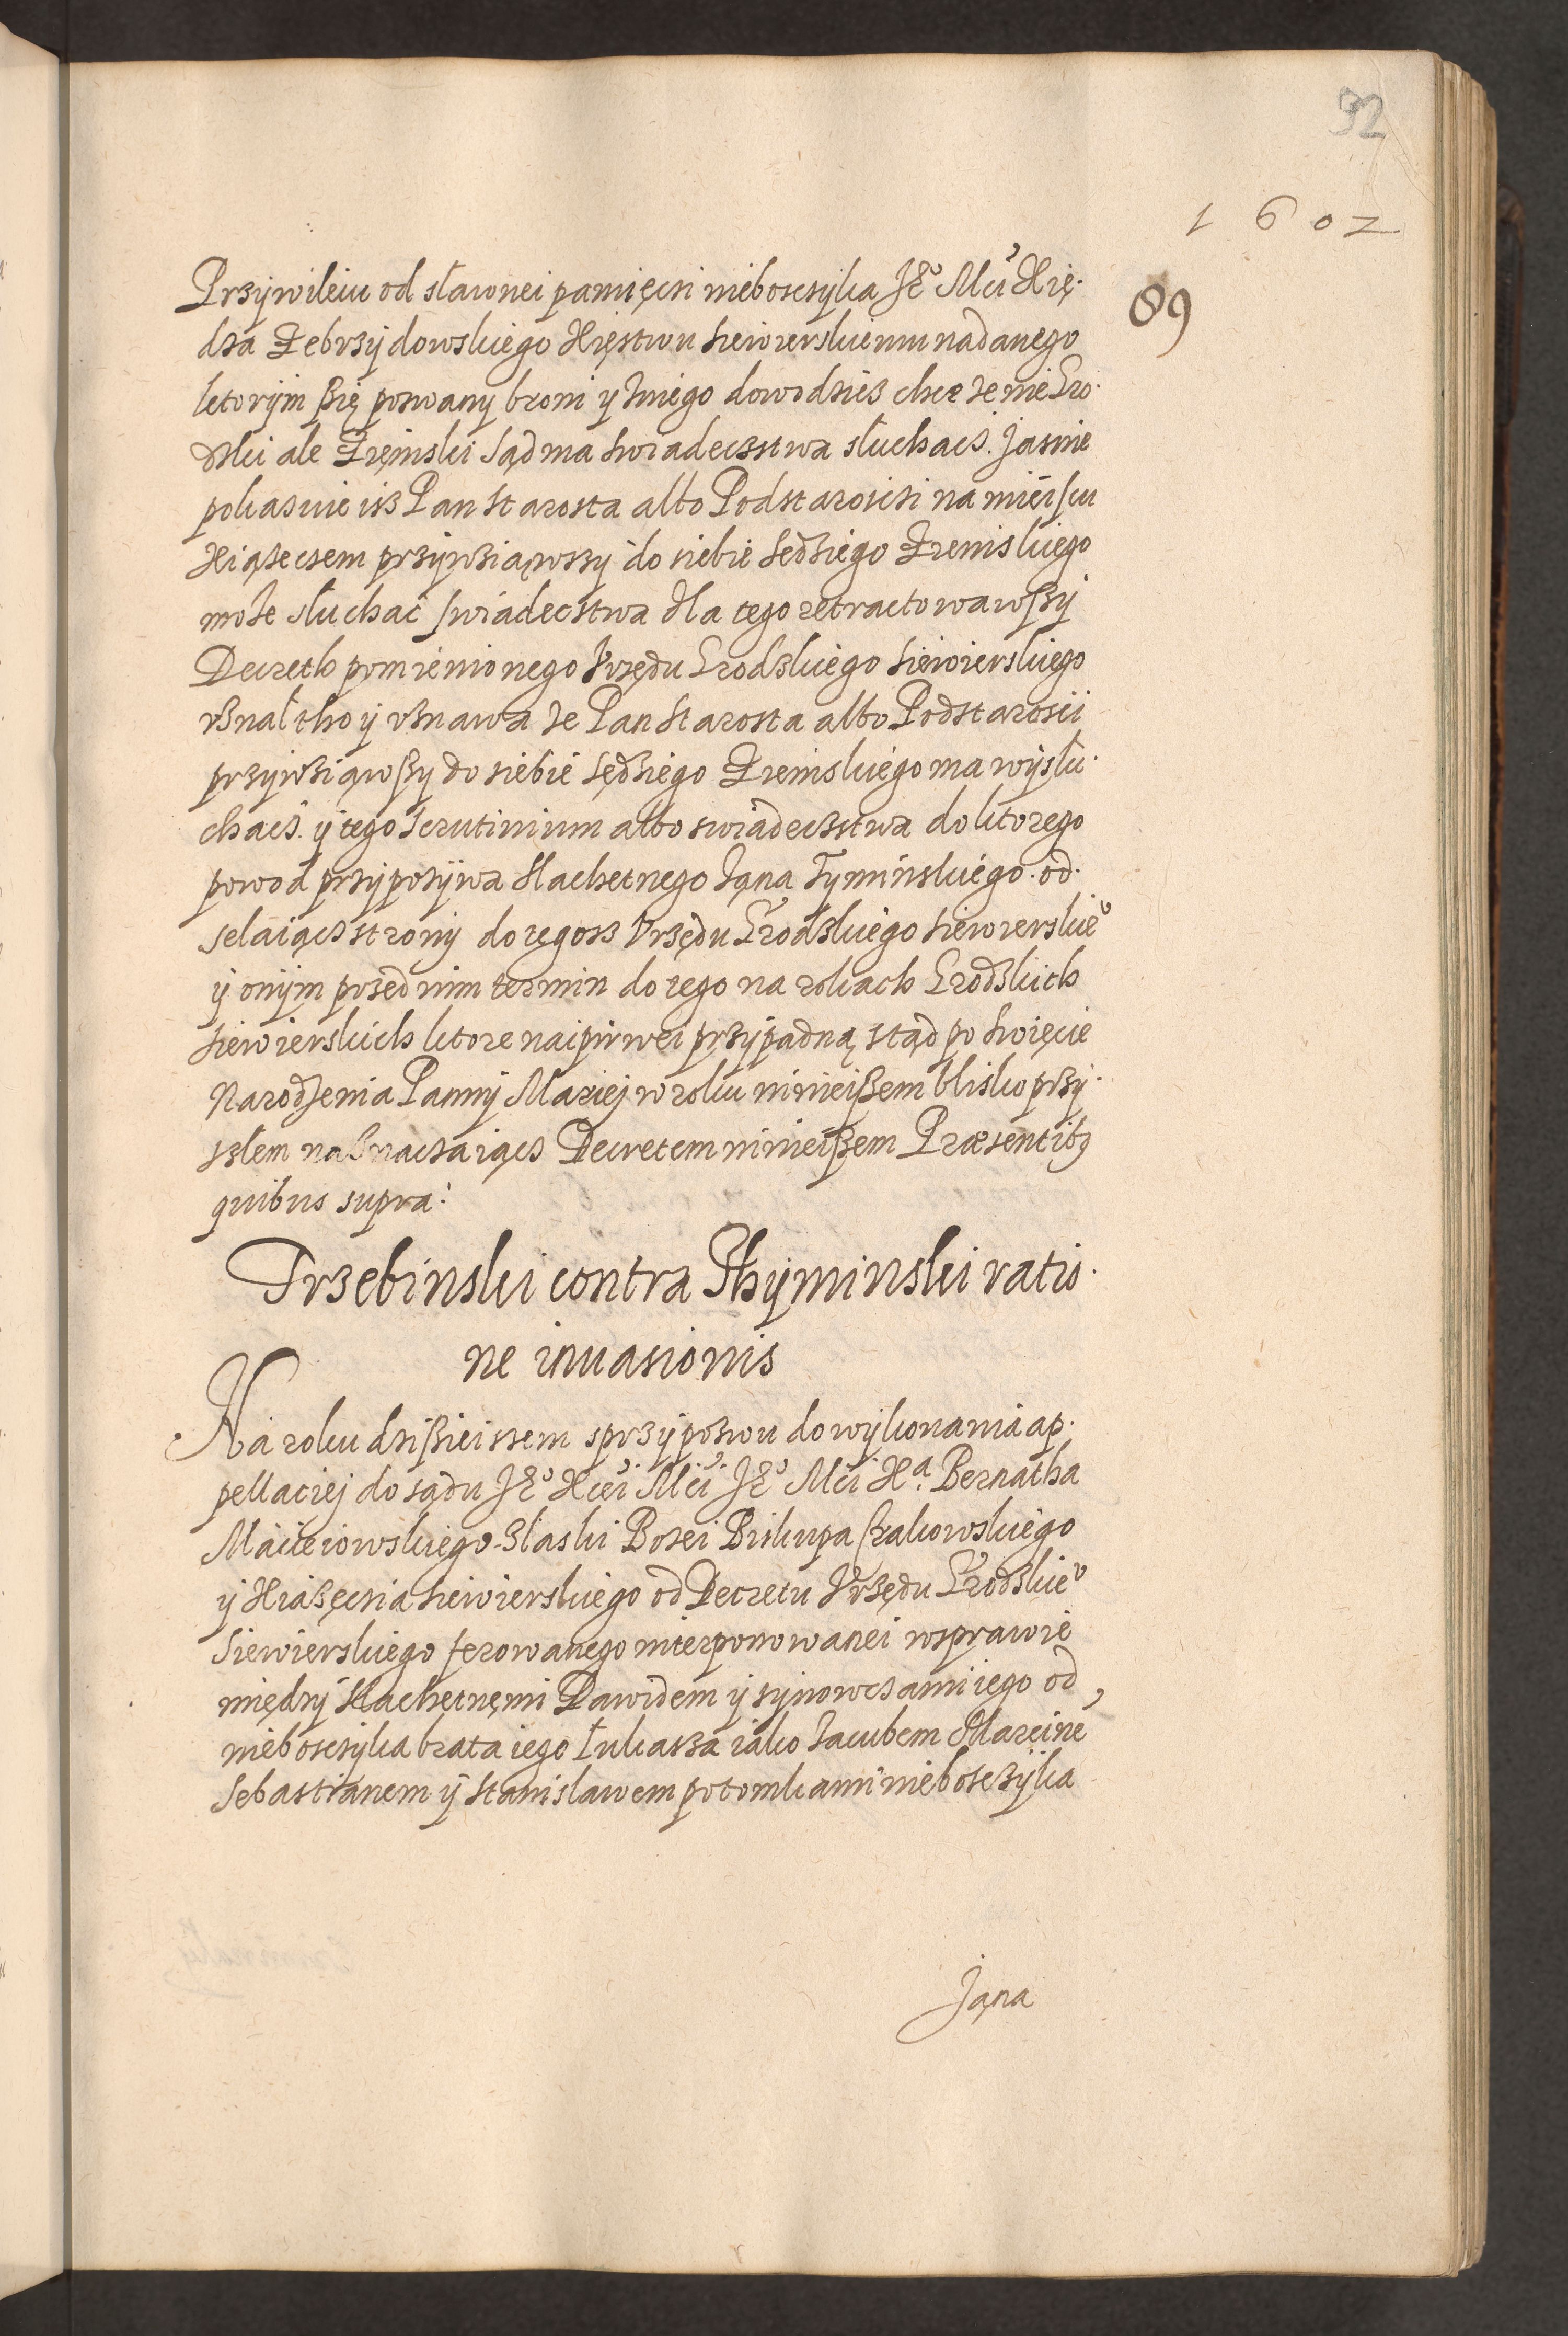 92
1602
89
Przÿwileiu od sławnei pamięczi nieboszczÿka Je͠º Mci Xię·
dza Zebrzÿdowskiego Xięstwu Siewierskiemu nadanego
ktorÿm ßię pozwanÿ broni ÿ zniego dowodzicz chce ze nie Gro·
dzki ale Zięmski Sąd ma swiadecztwa słuchacz. Jasnie
pokazuie isz Pan Starosta albo Podstarosczi na mieiscu
Xiążeczem przÿwziąwszÿ do siebie Sedziego Ziemskiego
moze słuchać swiadecztwa dla tego retractowawszÿ
Decreth pomienionego Vrzędu Grodzkiego Siewierskiego
vznał tho ÿ vznawa ze Pan Starosta albo Podstarosci
przÿwziąwszÿ do siebie Sędziego Ziemskiego ma wÿsłu·
chacz. ÿ tego Scrutinium albo swiadecztwa do ktorego
powod przÿpozÿwa Slachetnego Jana Tyminskiego. od·
selaiącz stronÿ do tegosz Vrzędu Grodzkiego Siewierskieº
ÿ onÿm przed nim termin do tego na rokach Grodzkich
Siewierskich ktore naipirwei przÿpadną stąd po Swięcie
Narodzenia Pannÿ Mariej w roku ninieißem blisko przÿ·
szlem naznaczaiącz Decretem ninieißem Præsentibꝫ
quibus supra:
Trzebinski contra Thÿminski ratio·
ne inuasionis
Na roku dzißieiszem z przÿpozwu do wÿkonania ap·
pellaciej do sądu Je͠º Xcei Mci Je͠º Mci Xa. Bernatha
Macieiowskiego z łaski Bozei Biskupa Krakowskiego
ÿ Xiazęczia Siewierskiego od Decretu Vrzędu Grodzkieº
Siewierskiego ferowanego interponowanei w sprawie
międzÿ Slachetnemi Dawidem ÿ sÿnowczami iego od
nieboszczÿka brata iego Łukasza iako Jacubem Marcine
Sebastianem ÿ Stanislawem potomkami nieboszczÿka
Jana